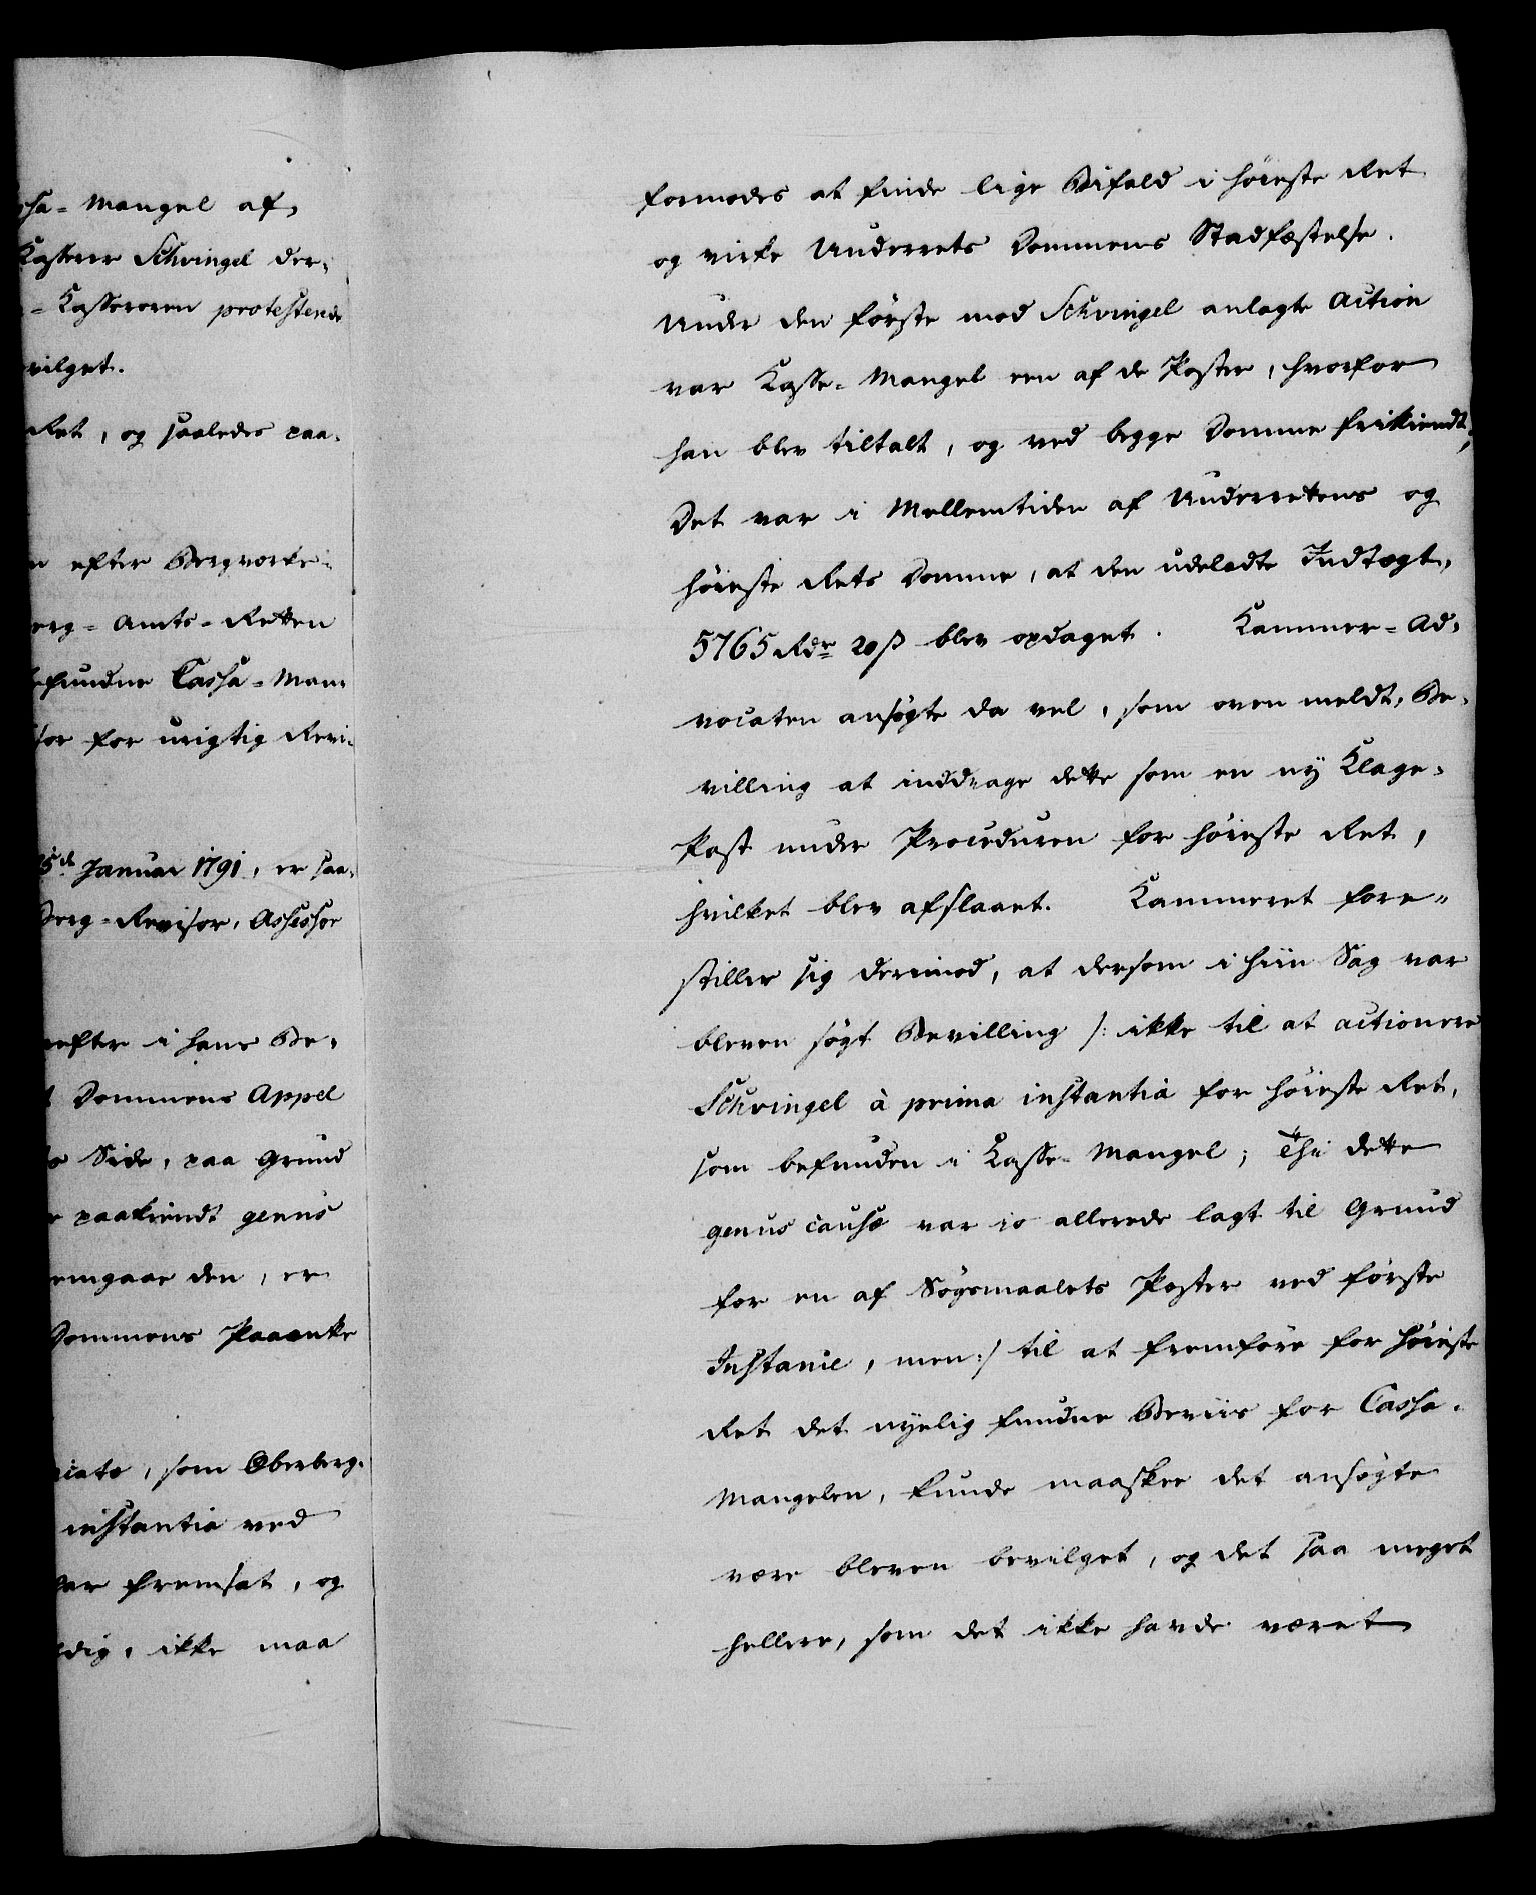 sha-Mangel af,
Kasserer Schvingel der-
-Kassereren protesterede
vilget.
Ret, og saaledes paa-
efter Bergværks-
erg-Amts-Retten
efundne Cassa-Man-
sor for urigtig Revi-
5de Januar 1791, er saa-
Berg-Revisor, Assessor
efter i hans Be-
Dommens Appel
Side, paa Grund
paakiendt genus
emgaae den, er
Dommens Paaanke
iato, som Oberberg-
instantia ved
var fremsat, og
dig, ikke maa
formodes at finde lige Bifald i höieste Ret
og virke Underrets Dommens Stadfæstelse.
Under den förste mod Schvingel anlagte Action
var Kasse-Mangel een af de Poster, hvorfor
han blev tiltalt, og ved begge Domme frikiendt;
Det var i Mellemtiden af Underrettens og
höieste Rets Domme, at den udeladte Indtægt,
5765 Rdr 20 ß blev opdaget. Kammer-Ad-
vocaten ansøgte da vel, som oven meldt, Be-
villing at inddrage dette som en ny Klage-
Post under Proceduren for höieste Ret,
hvilket blev afslaaet. Kammeret fore-
stiller sig derimod, at dersom i hiin Sag var
bleven søgt Bevilling /: ikke til at actionere
Schvingel à prima instantia for höieste Ret,
som befunden i Kasse-Mangel; Thi dette
genus causæ var jo allerede lagt til Grund
for en af Søgsmaalets Poster ved förste
Instance, men :/ til at fremföre for Höieste
Ret det nyelig fundne Beviis for Cassa-
Mangelen, kunde maaskee det ansøgte
være bleven bevilget, og det saa meget
hellere, som det ikke havde været